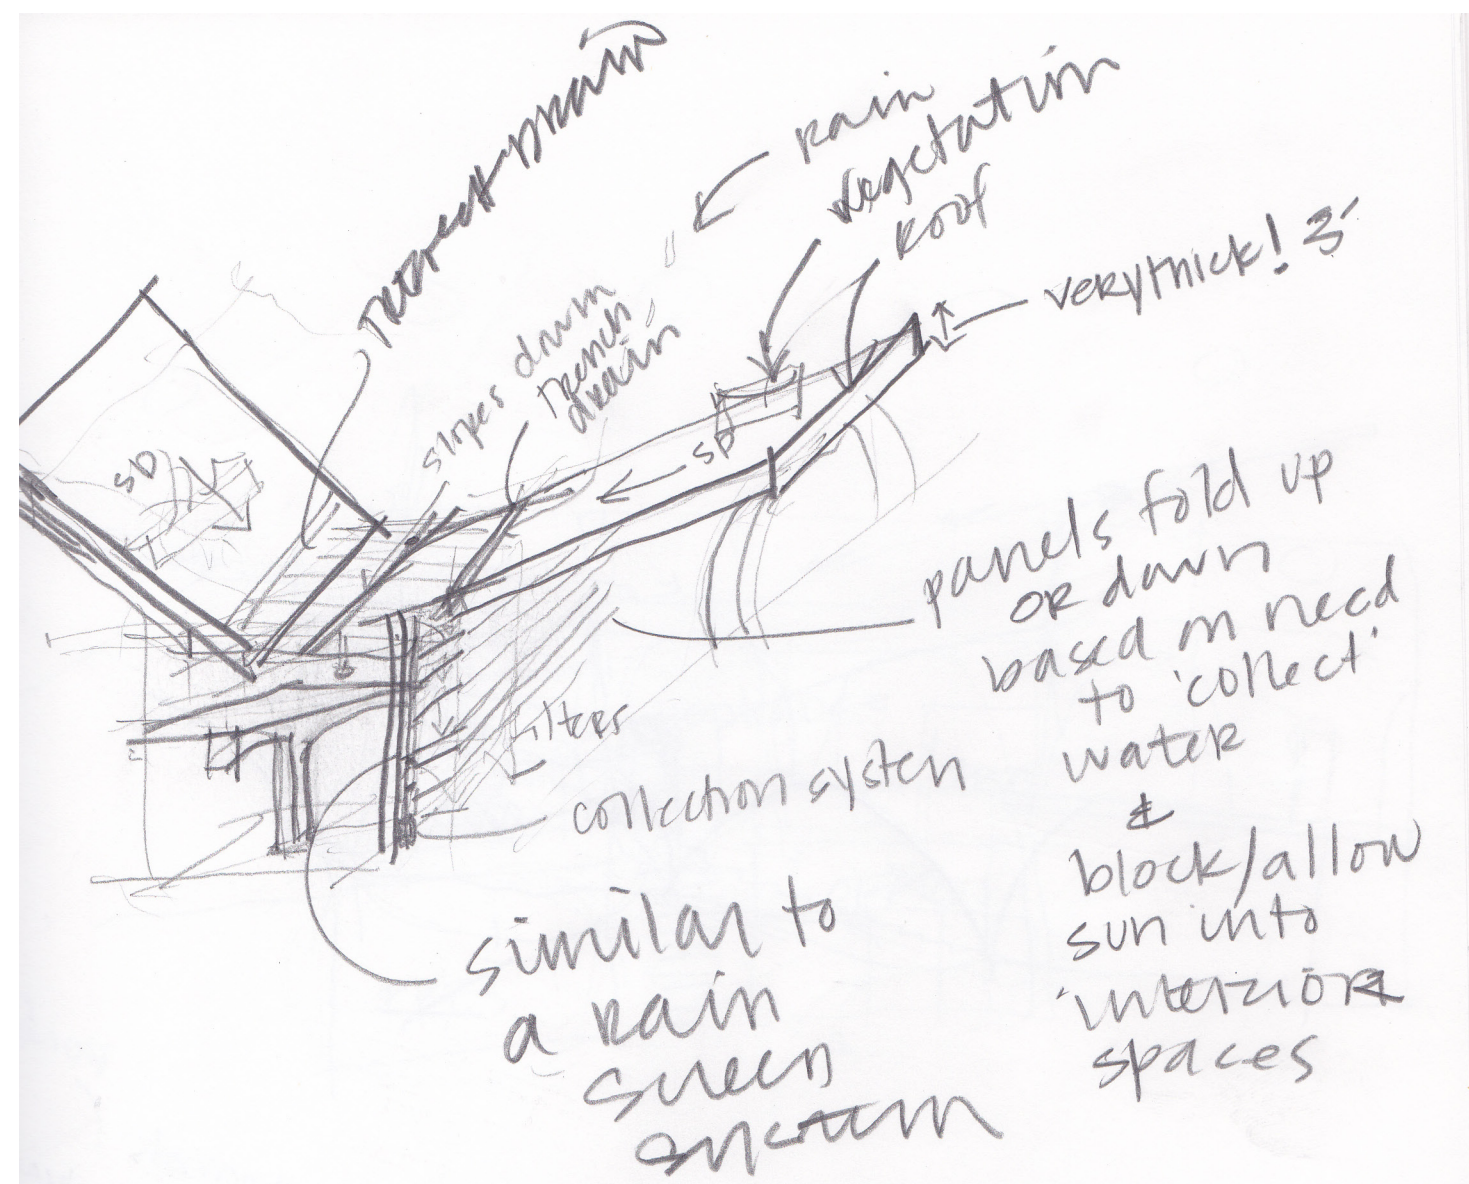 rain
vegetation
roof
very thick! 3'
slopes down
trench
drain
SD
SD
panels fold up
or down
based on need
to 'collect'
water
&
block/allow
sun into
interior
spaces
filters
collection system
similar to
a rain
screen
system
drain